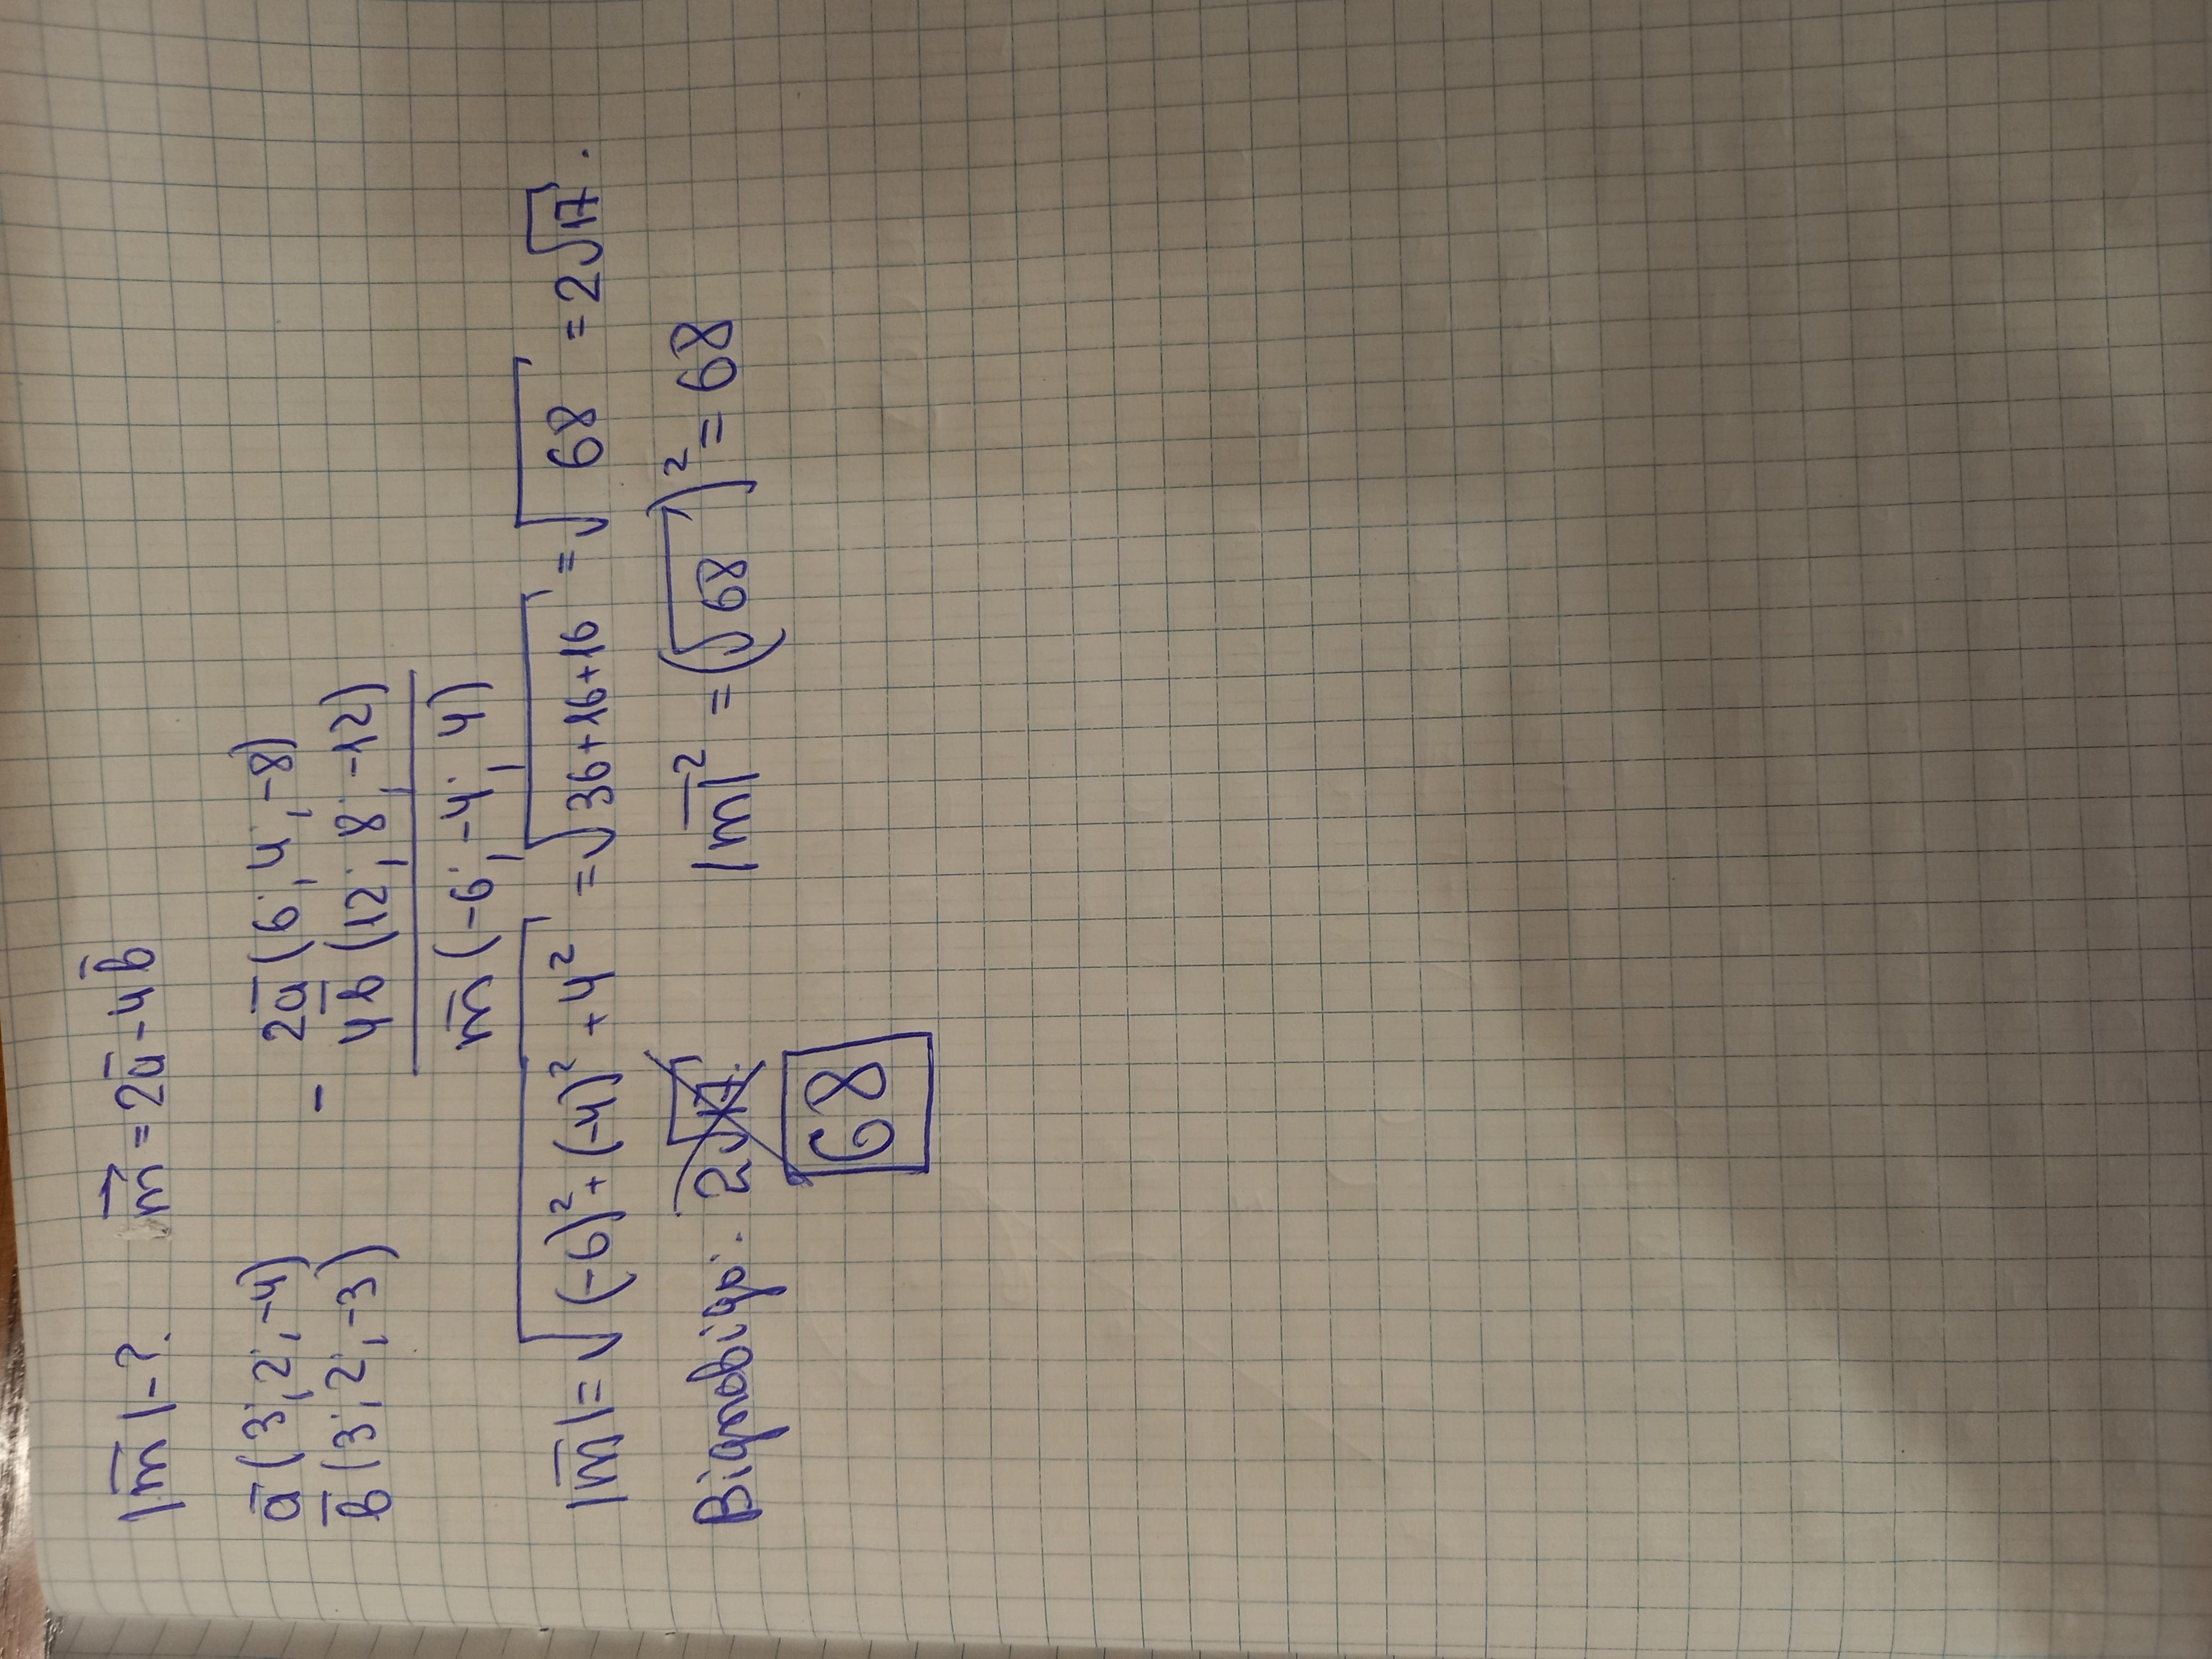 |m̅| - ? m⃗ = 2a̅ - 4b̅
a̅ (3; 2; -4) - 2a̅ (6; 4; -8)
b̅ (3; 2; -3) 4b̅ (12; 8; -12)
m̅ (-6; -4; 4)
|m̅| = √(-6)² + (-4)² + 4² = √36+16+16 = √68 = 2√17.
Відповідь: 2√17. |m̅|² = (√68)² = 68
68